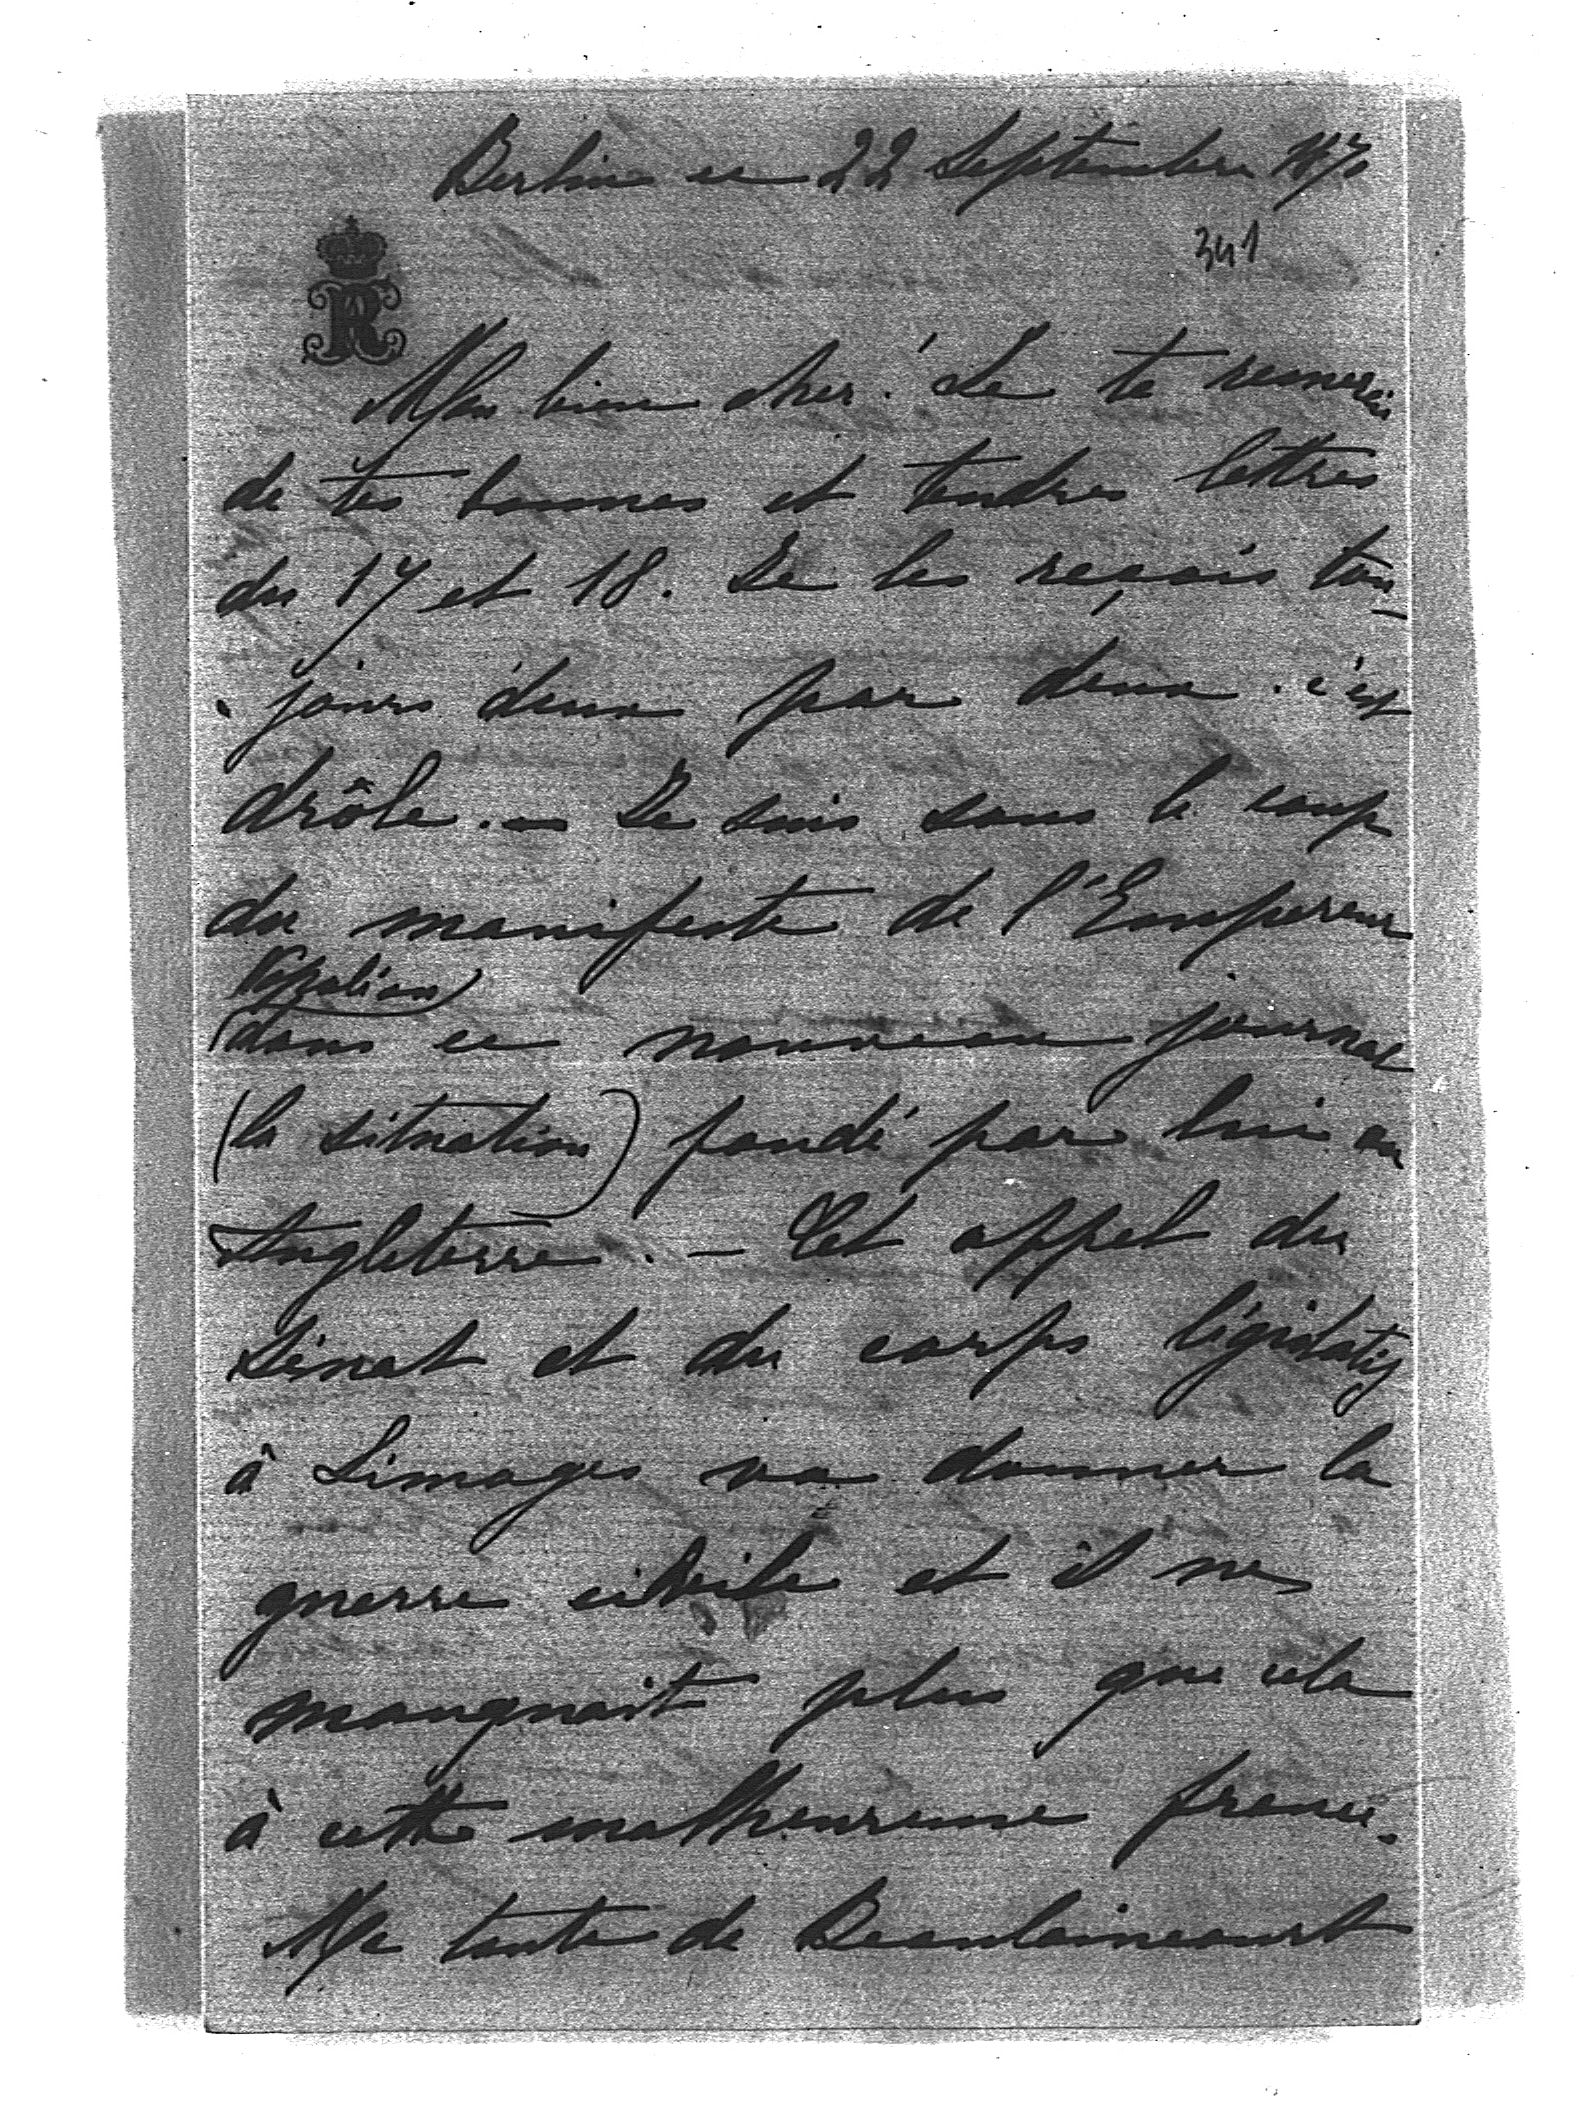 Berlin ce 22 Septembre 1870
341
AR
Mon bien cher. Je te remercie
de tes bonnes et tendres lettres
du 17 et 18. Je les reçois tou-
jours deux par deux. c'est
drôle. — Je suis sous le coup
du manifeste de l'Empereur
Napoléon
dans ce nouveau journal
(la situation) fondé par lui en
Angleterre. — Cet appel du
Sénat et du corps législatif
à Limoges va donner la
guerre civile et il ne
manquait plus que cela
à cette malheureuse france.
Ma tante de Beaulaincourt